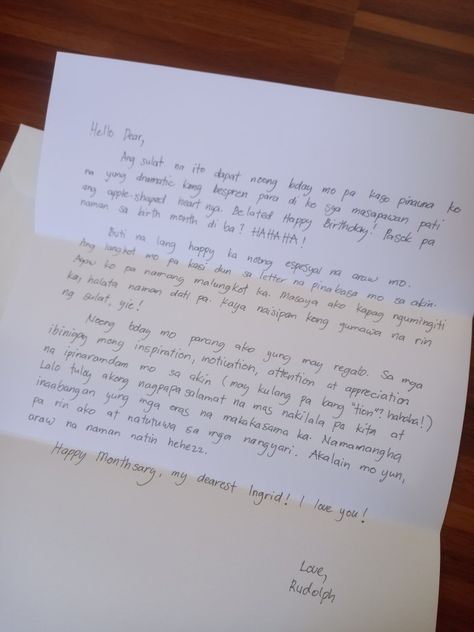 Hello Dear,
Ang sulat na ito dapat noong bday mo pa kaso pinauna ko
na yung dramatic kong bespren para di ko sya masapawan pati
ang apple-shaped heart nya. Belated Happy Birthday! Pasok pa
naman sa birth month di ba? HAHAHA!
Buti na lang happy ka noong espesyal na araw mo.
Ang lungkot mo pa kasi dun sa letter na pinabasa mo sa akin.
Ayaw ko pa namang malungkot ka. Masaya ako kapag ngumingiti
ka, halata naman dati pa. Kaya naisipan kong gumawa na rin
ng sulat, yie!
Noong bday mo parang ako yung may regalo. Sa mga
ibinigay mong inspiration, motivation, attention at appreciation
na ipinaramdam mo sa akin (may kulang pa bang "tion"? hahaha!)
Lalo tuloy akong nagpapasalamat na mas nakilala pa kita at
inaabangan yung mga oras na makakasama ka. Namamangha
pa rin ako at natutuwa sa mga nangyari. Akalain mo yun,
araw na naman natin hehezz.
Happy Monthsary, my dearest Ingrid! I love you!
Love,
Rudolph